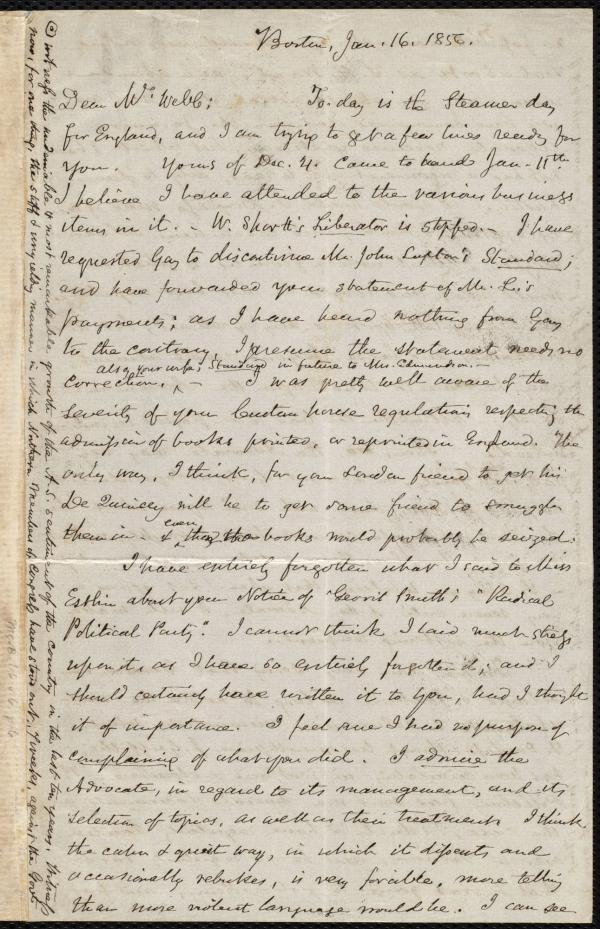 Boston, Jan. 16. 1856.
Dear Mr. Webb; To-day is the Steamer day
for England, and I am trying to get a few lines ready for
you. Yours of Dec. 4. came to hand Jan. 11th.
I believe I have attended to the various business
items in it. - W. Shortt's Liberator is stopped. - I have
requested Gay to discontinue Mr. John Lupton's Standard;
and have forwarded your statement of Mr.
payments; as I have heard nothing from Gay
to the contrary, I presume the statement needs no
also your wife's Standard in future to Mrs. Edmundson. -
correction. ^ - I was pretty well aware of the
severity of your Custom house regulations respecting the
admission of books printed, or reprinted in England. The
only way, I think, for your London friend to get his
De Quincey will be to get some friend to smuggle
them in - & even then the books would probably be seized.
I have entirely forgotten what I said to Miss
Estlin about your Notice of "Gerrit Smith's "Radical
Political Party". I cannot think I laid much stress
upon it, as I have so entirely forgotten it; and I
should certainly have written it to you, had I thought
it of importance. I feel sure I had no purpose of
complaining of what you did. I admire the
Advocate, in regard to its management, and its
selection of topics, as well as their treatment. I think
the calm & quiet way, in which it dissents and
occasionally rebukes, is very forcible, more telling
than more violent language would be. I can see
witness the undeniable & most remarkable growth of the A. S. sentiment of the country in the last ten years. Witness
now, for one thing, the stiff & unyielding manner in which Northern members of Congress have stood out, 7 weeks, against the